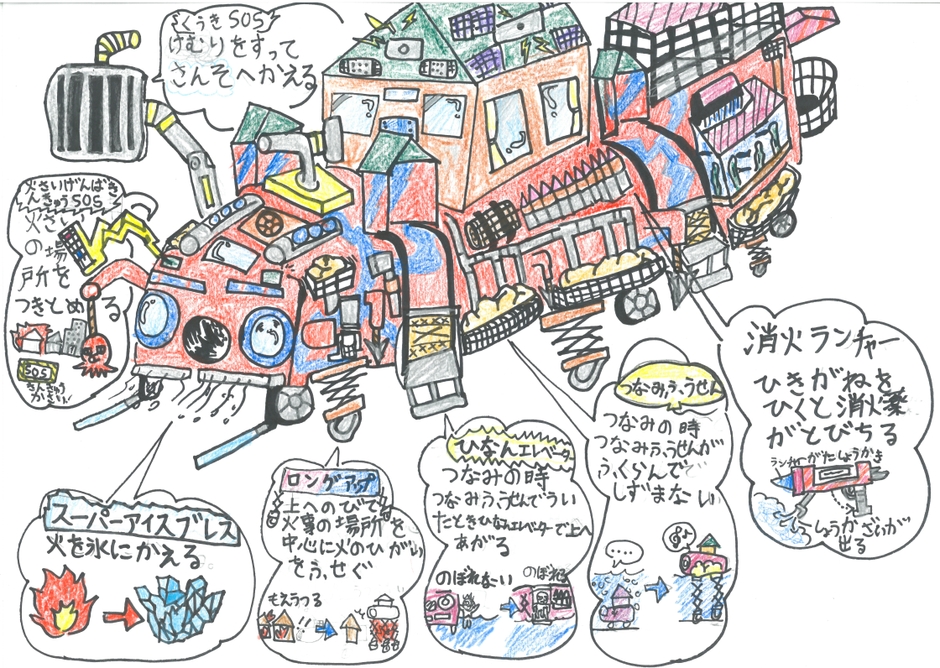 さくうきSOS
けむりをすって
さんそへかえる
火さいげんばき
んきゅうSOS
火さい
の場
所を
つきとめる
SOS
かさい
スーパーアイスブレス
火を氷にかえる
ロングアップ
上へのびて
火事の場所を
中心に火のひがい
をふせぐ
もえうつる
ひなんエレベータ
つなみの時
つなみふうせんでうい
たときひなんエレベーターで上へ
あがる
のぼれない
のぼれる
つなみふうせん
つなみの時
つなみふうせんが
ふくらんで
しずまない
消火ランチャー
ひきがねを
ひくと消火薬
がとびちる
ランチャーがたしょうかき
しょうかざいが
出る